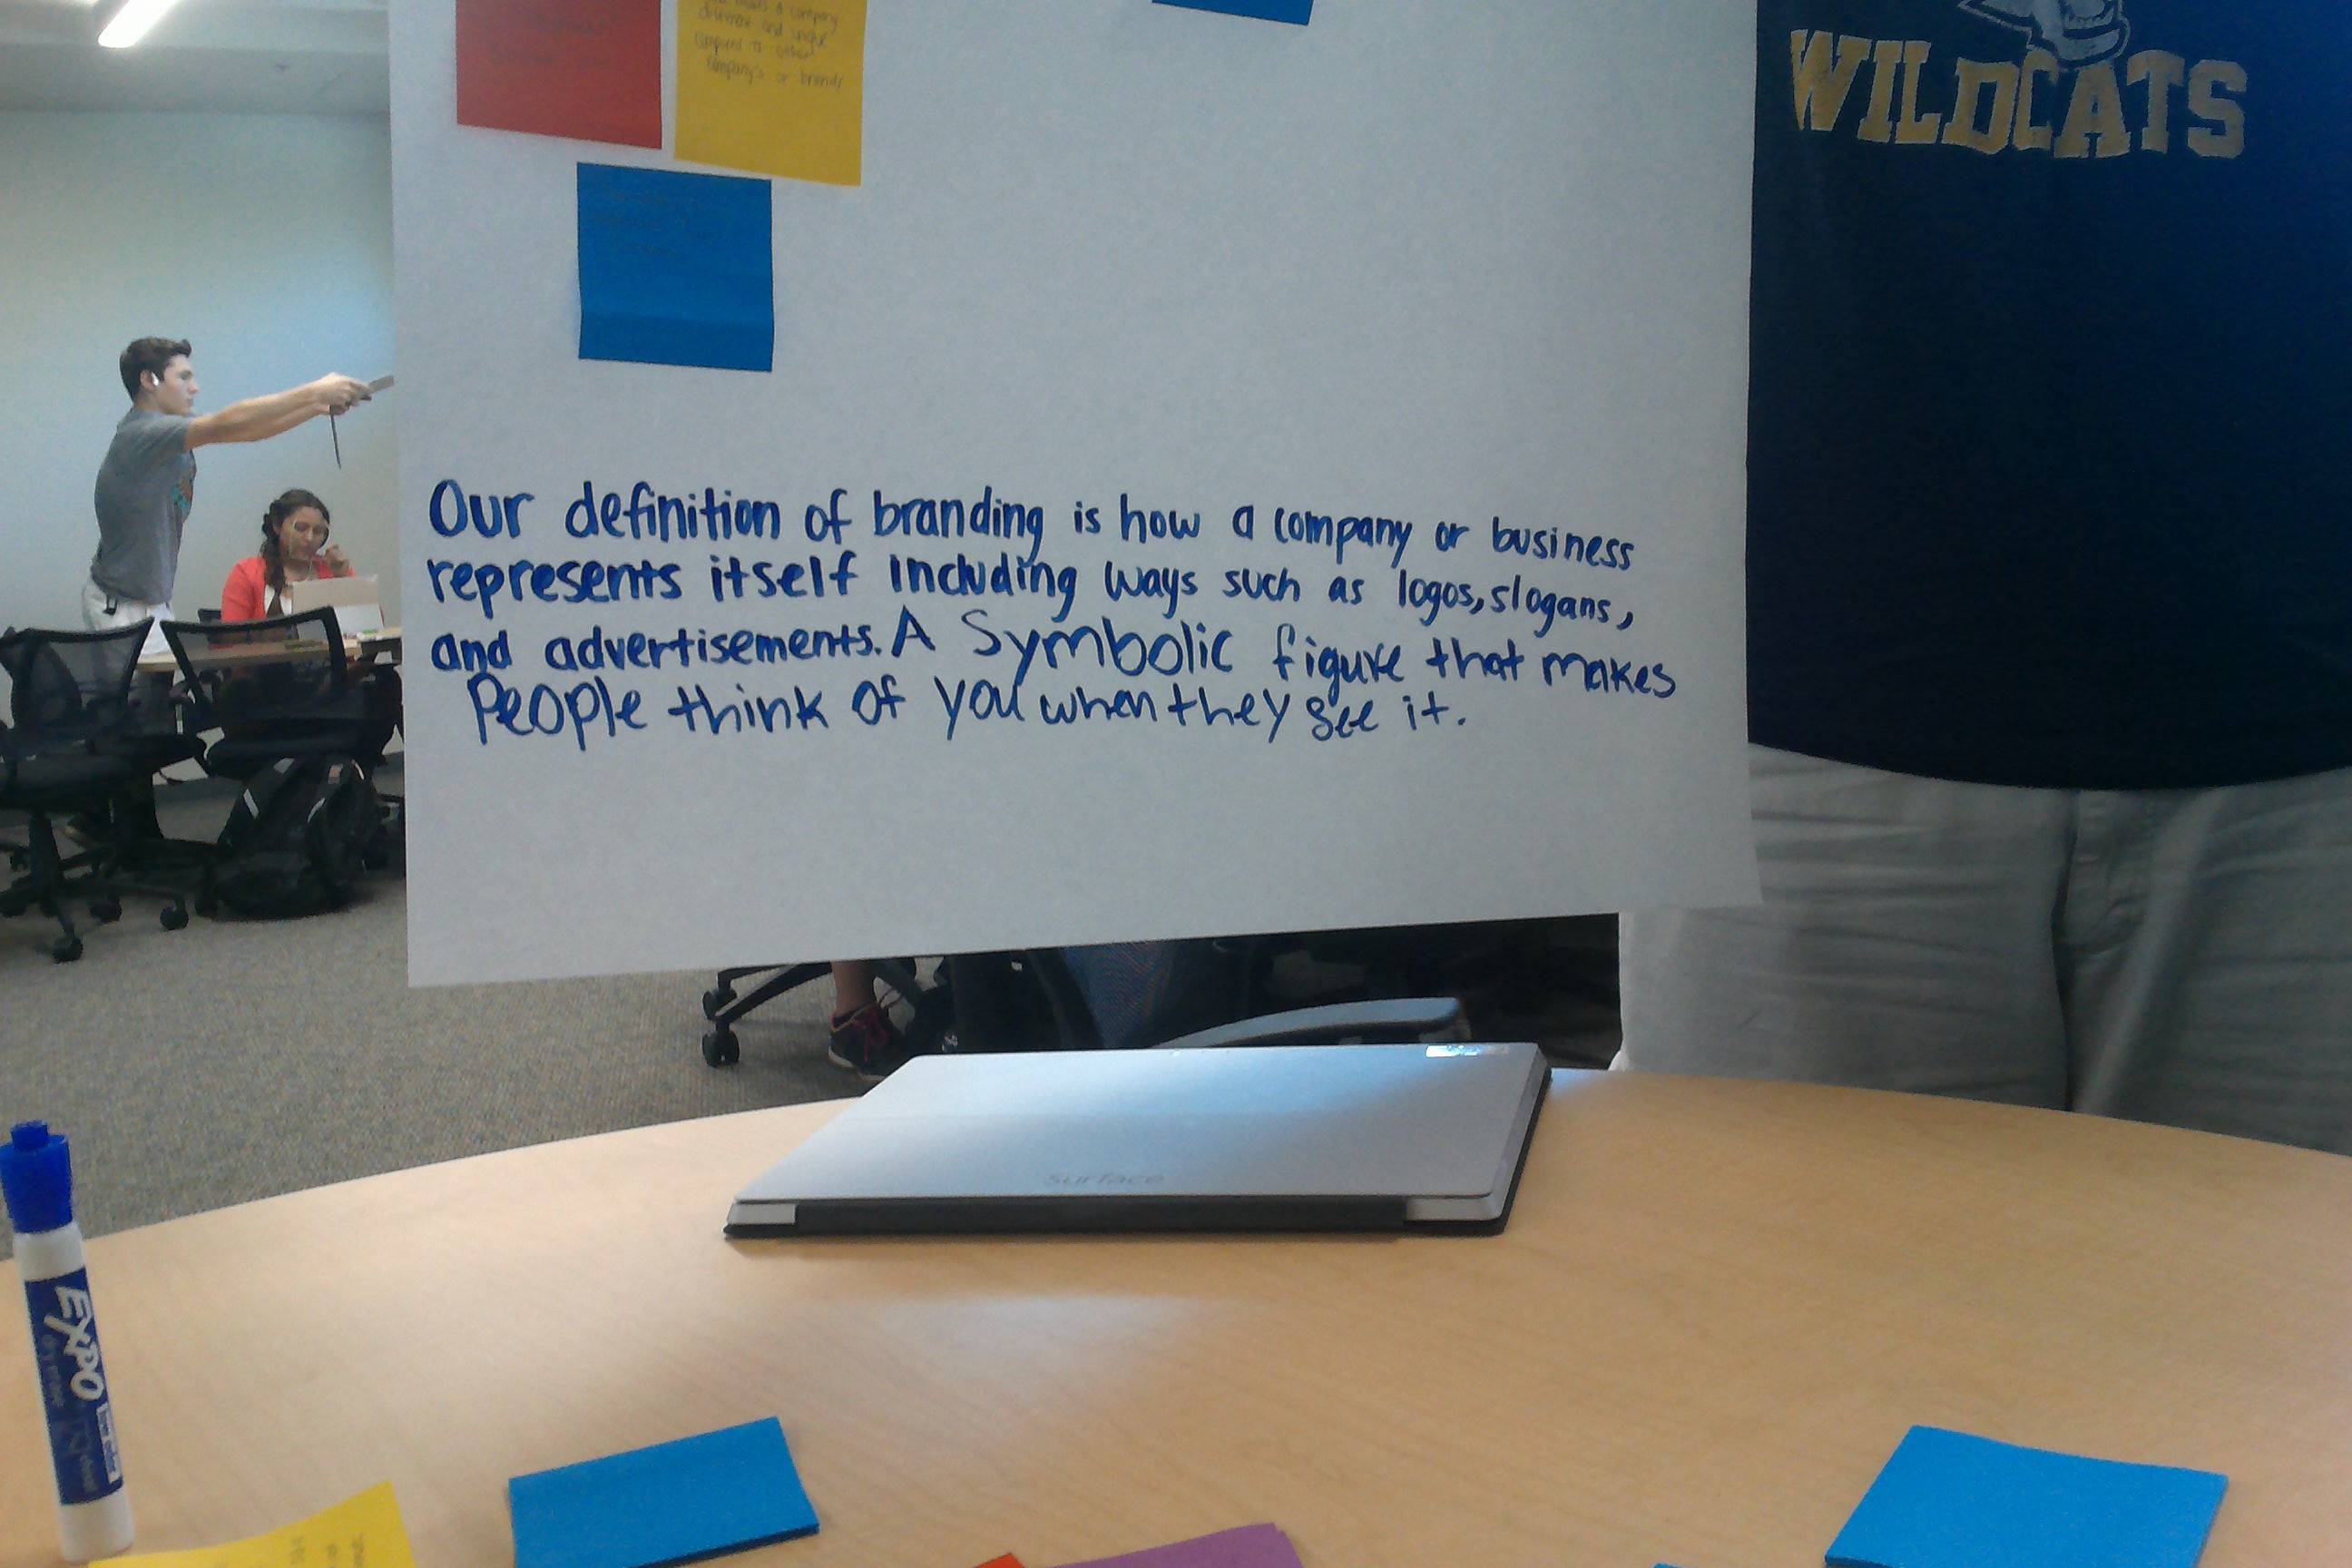 makes a company
diverse and unique
compared to other
company's or brands
WILDCATS
Our definition of branding is how a company or business
represents itself including ways such as logos, slogans,
and advertisements. A Symbolic figure that makes
People think of you when they see it.
Surface
EXPO